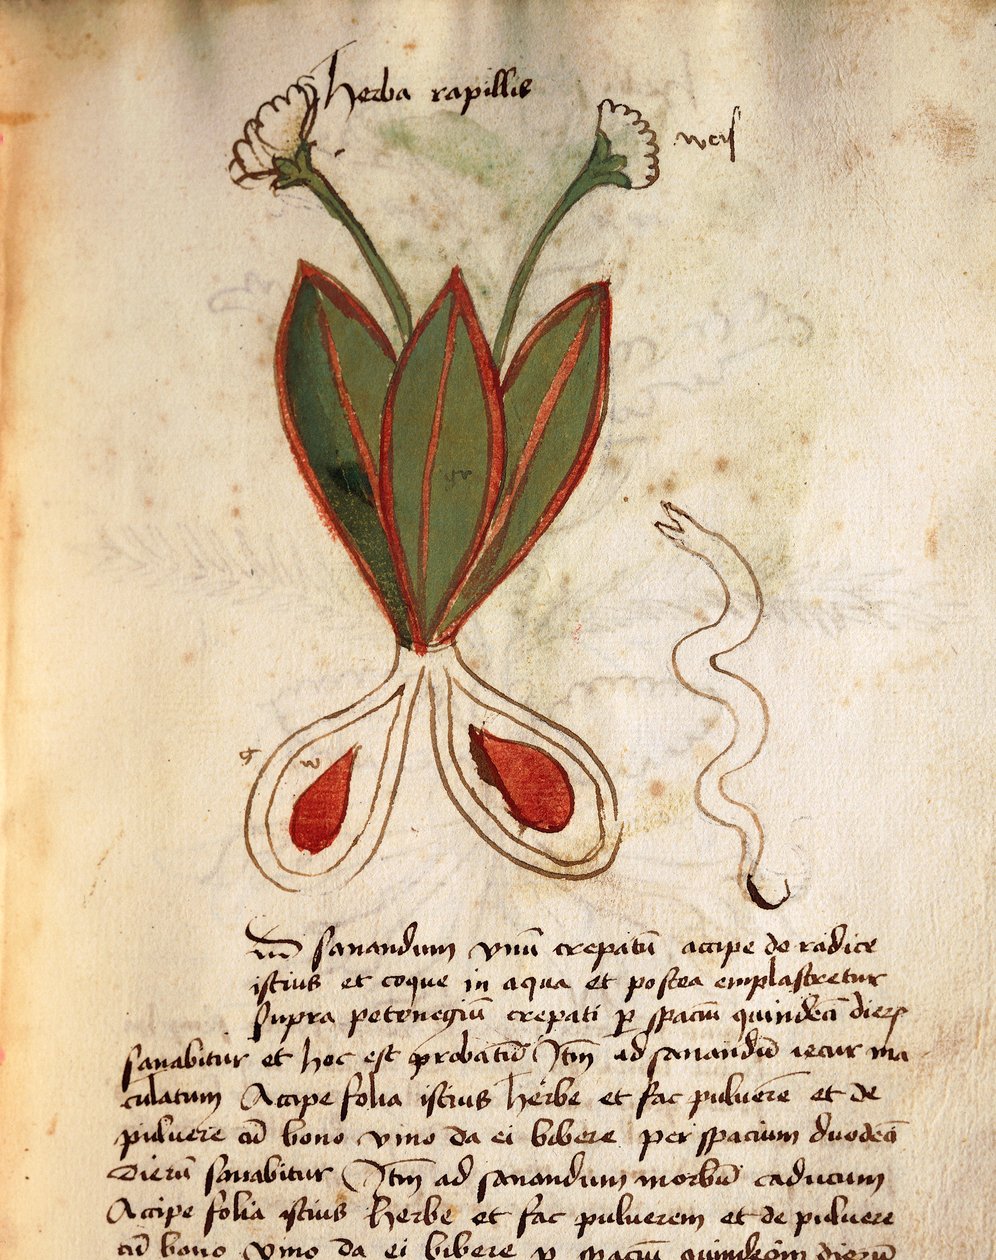 herba rapillis
weis
gr
g
w
Ad sanandum vnū crepatū accipe de radice
istius et coque in aqua et postea emplastretur
supra petenegiū crepati p spaciū quindecī dierꝫ
sanabitur et hoc est probatū Itm ad sanandū iecur ma
culatum Accipe folia istius herbe et fac puluere et de
puluere cū bono vino da ei bibere per spacium duodecī
dierū sanabitur Itm ad sanandum morbū caducum
Accipe folia istius herbe et fac puluerem et de puluere
cū bono vino da ei bibere p spaciū quindecim dierū